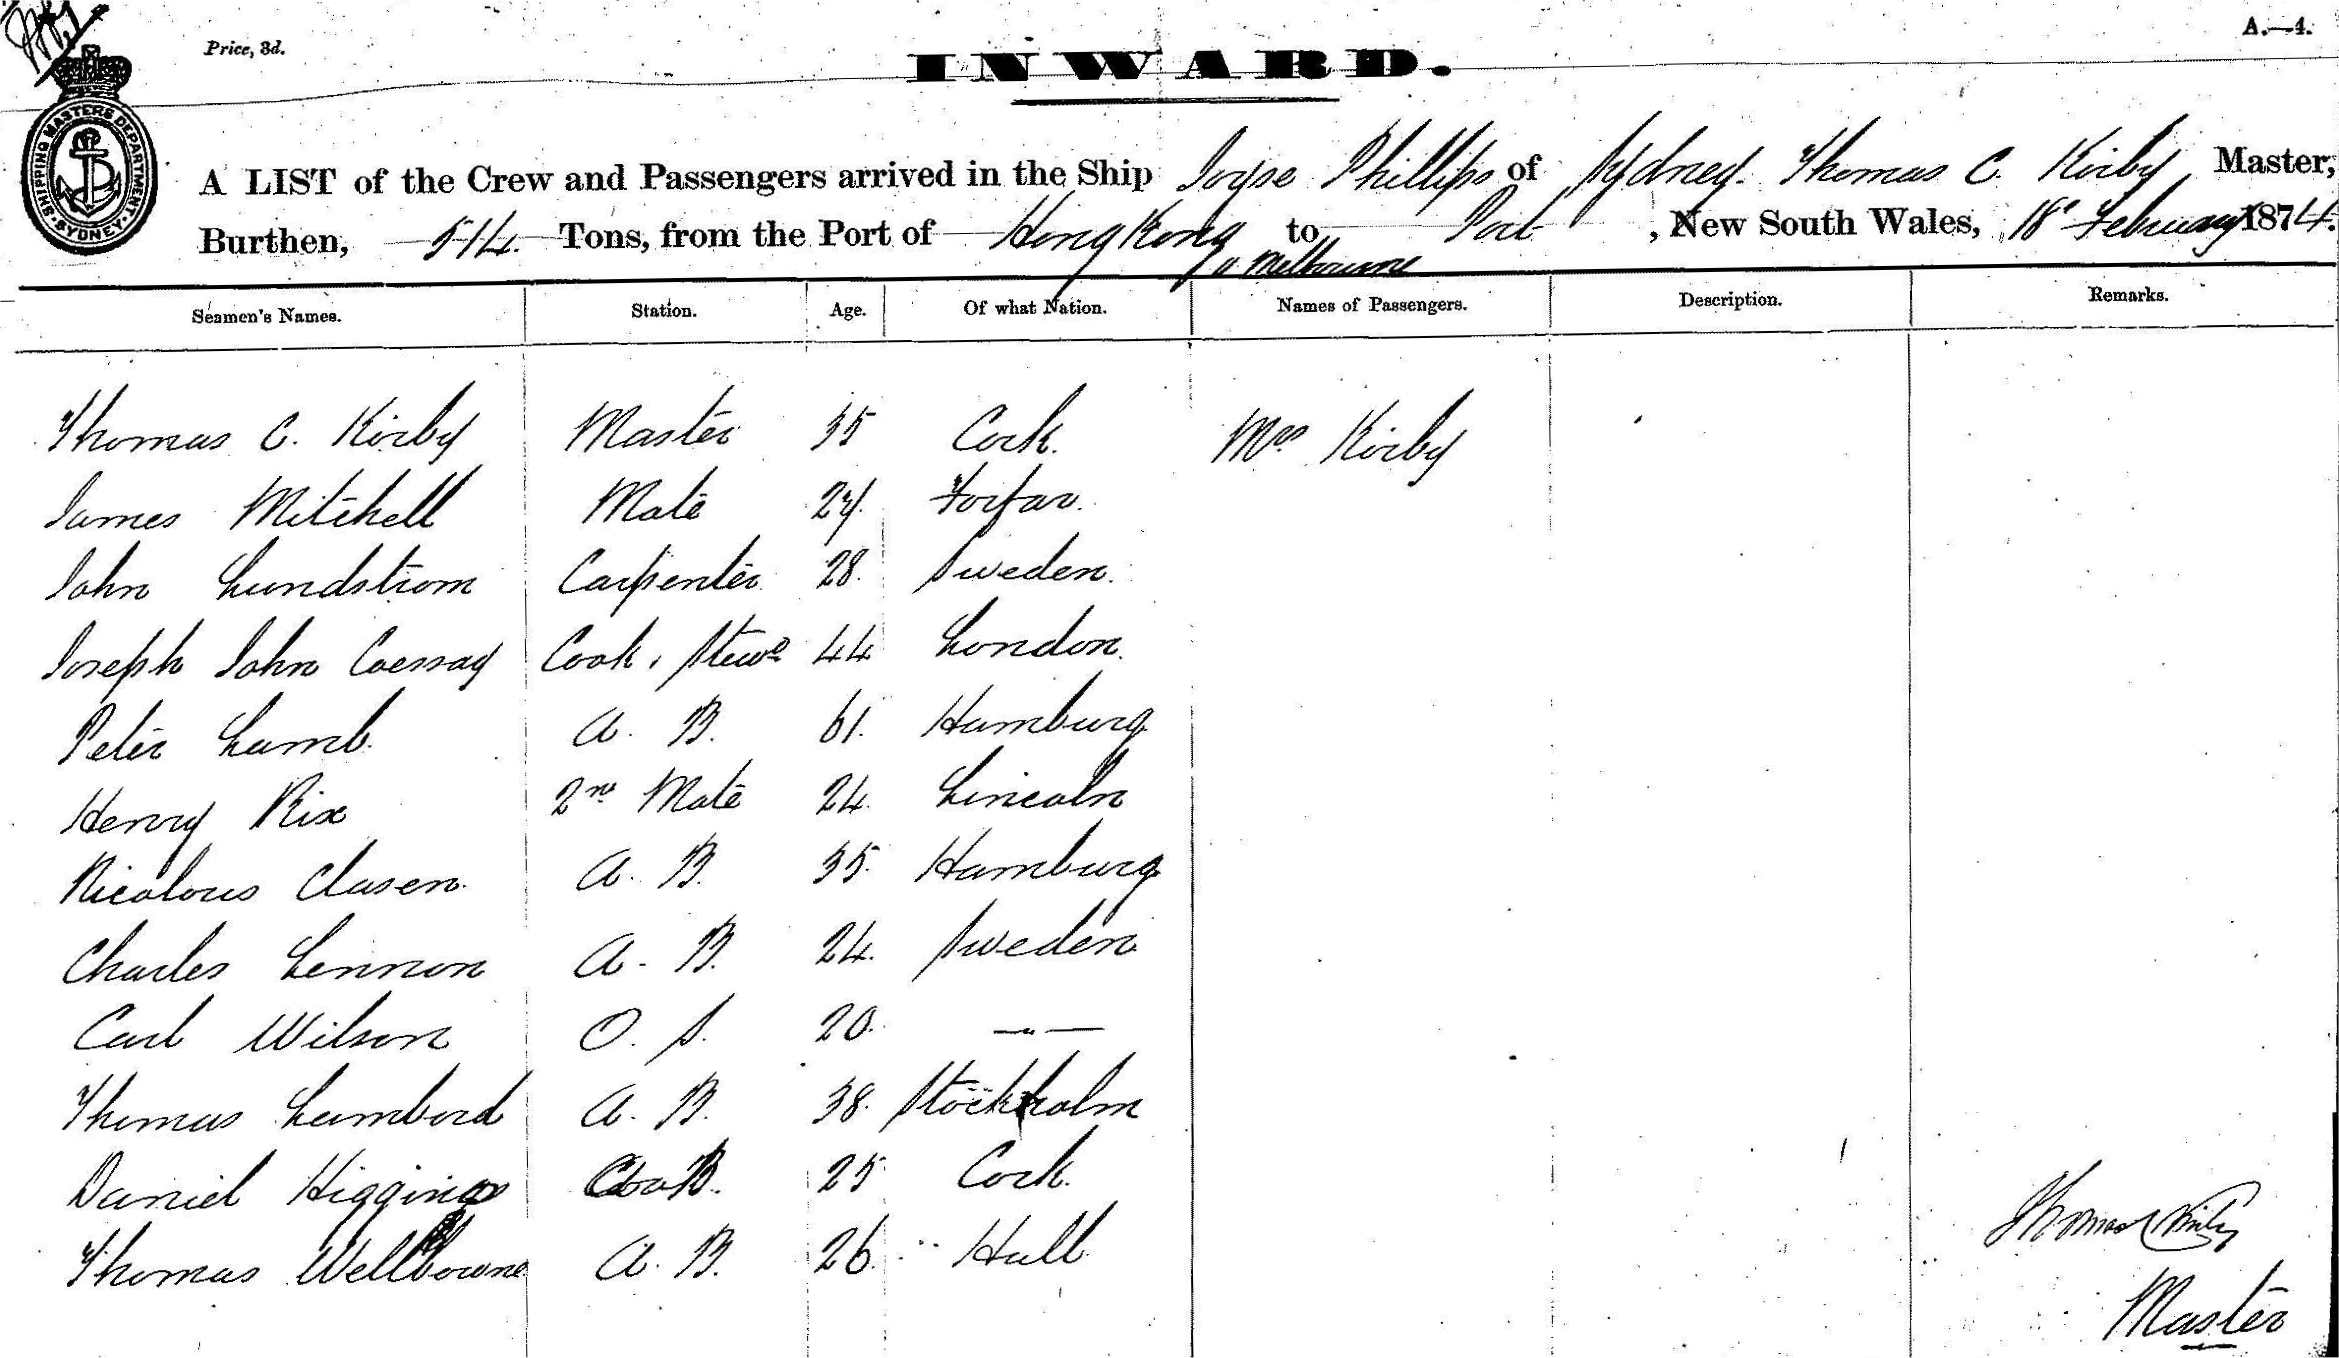 Price, 3d.
A.—4.
INWARD.
SHIPPING MASTERS DEPARTMENT SYDNEY
A LIST of the Crew and Passengers arrived in the Ship Joyse Phillips of Sydney. Thomas C. Kirby Master,
Burthen, 514. Tons, from the Port of Hong Kong to Port , New South Wales, 18 February 1874.
Melbourne
Seamen's Names. Station. Age. Of what Nation. Names of Passengers. Description. Remarks.
Thomas C. Kirby Master 35 Cork. Mrs Kirby
James Mitchell Mate 27. Forfar.
John Lundstrom Carpenter 28. Sweden.
Joseph John Coessay Cook, Stewd 44 London.
Peter Lamb. A. B. 61. Hamburg
Henry Rix 2nd Mate 24. Lincoln
Nicolous Clasen. A. B. 35. Hamburg
Charles Lennon A. B. 24. Sweden
Carl Wilson O. S. 20. — " —
Thomas Lambord A. B. 38. Stockholm
Daniel Higgins 25 Cork.
Thomas Wellbourne A. B. 26. Hull
Thomas C Kirby
Master